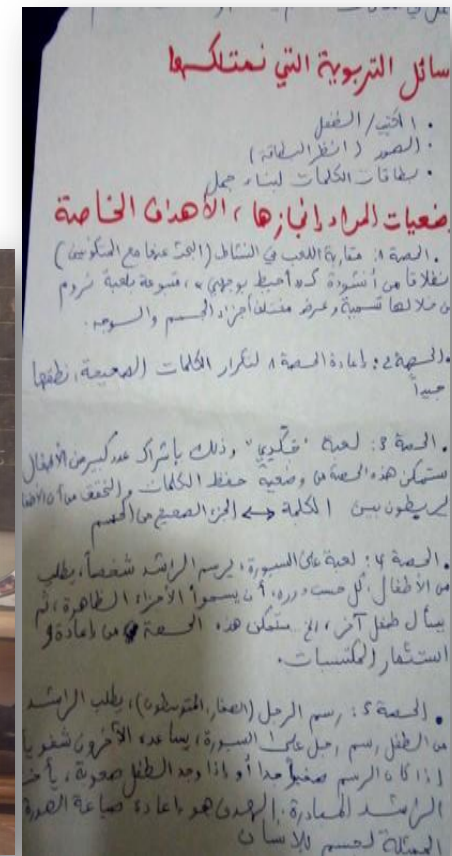 سائل التربوية التي نمتلكها
• الكتب / الطفل
• الصور (انظر البطاقة)
• بطاقات الكلمات لبناء جمل
ضعيات المراد إنجازها، الأهداف الخاصة
• الحصة 1: مقاربة اللعب في النشاط (البحث عنها مع المتكونين)
نطلاقا من أنشودة "أحيط بوجهي"، متبوعة بلعبة نروم
من خلالها تسمية وعرض مختلف أجزاء الجسم والوجه.
• الحصة 2: إعادة الحصة 1 لتكرار الكلمات الصحيحة، نطقها
جيداً
• الحصة 3: لعبة وذلك بإشراك عدد كبير من الأطفال
ستمكن هذه الحصة من وضعية حفظ الكلمات والتحقق من أن الأطفا
يربطون بين الكلمة ↔ الجزء الصحيح من الجسم
• الحصة 4: لعبة على السبورة، يرسم الراشد شخصاً، يطلب
من الأطفال، كل حسب دوره، أن يسموا الأجزاء الظاهرة، ثم
يسأل طفل آخر، الخ. ستمكن هذه الحصة من إعادة
استثمار المكتسبات.
• الحصة 5: رسم الرجل (الصغار، المتوسطون)، يطلب الراشد
من الطفل رسم رجل على السبورة، يساعده الآخرون شفويا
إذا كان الرسم صغيراً جدا أو إذا وجد الطفل صعوبة، يأخذ
الراشد المبادرة. الهدف هو إعادة صياغة الصورة
الممثلة لجسم الإنسان